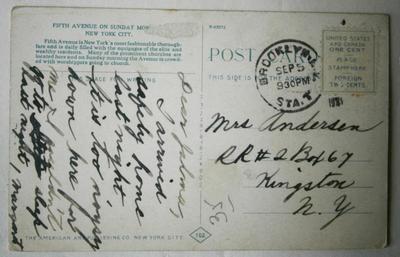 FIFTH AVENUE ON SUNDAY
NEW YORK CITY.
Fifth Avenue is New York's most fashionable thorough-
fare and is daily filled with the equipages of the elite and
wealthy residents. Many of the prominent churches are
located here and on Sunday morning the Avenue is crowded
with worshippers going to church.
FOR WRITING
Dear
I arrived
safely home
last night
it is too noisy
down here for
me I
go to sleep
last night,
THE AMERICAN ART CO. NEW YORK CITY.
162
POST
THIS SIDE IS
BROOKLYN, N.Y.
SEP 5
930PM
STA. T
UNITED STATES
AND CANADA
ONE CENT
PLACE
STAMP HERE
FOREIGN
TWO CENTS
Mrs Andersen
RR#2 Box 67
Kingston
N.Y
35